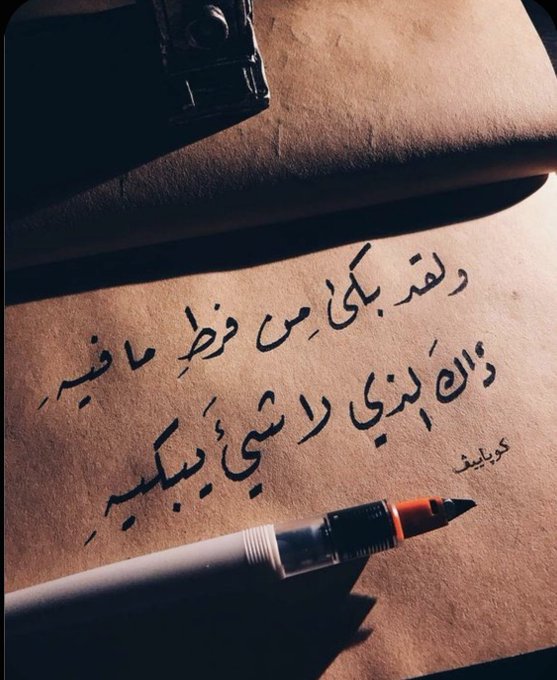 ولقد بكىٰ مِن فرطِ ما فيهِ
ذَاكَ الذي لا شيئَ يبكيهِ
كوپاييڤ